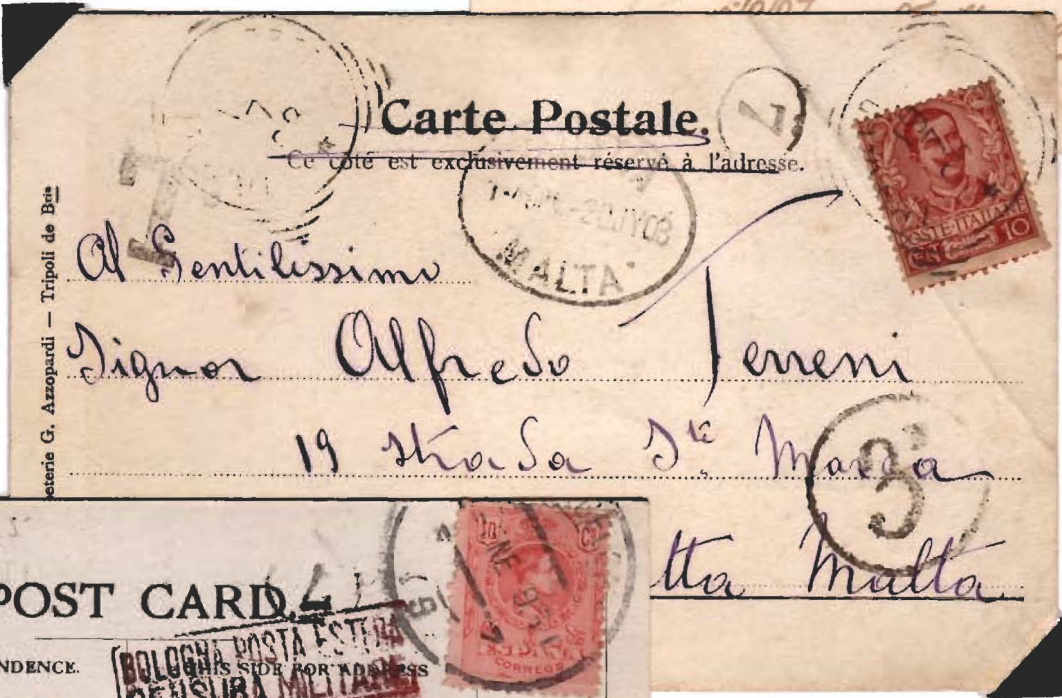 Carte Postale.
Ce côté est exclusivement réservé à l'adresse.
7
7-20JY03
MALTA
POSTE ITALIANE
10
eterie G. Azzopardi — Tripoli de Bie
Al Gentilissimo
Signor Alfredo Terreni
19 Strada Sta
3d
tta Malta
POST CARD.
NDENCE.
THIS SIDE FOR ADDRESS
BOLOGNA POSTA ESTERA
CENSURA MILITARE
10
CORREOS